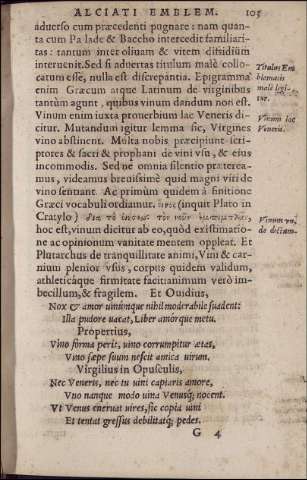 ALCIATI EMBLEM. 105
aduerso cum præcedenti pugnare: nam quan-
ta cum Pallade & Baccho intercedit familiari-
tas: tantum inter oliuam & vitem dissidium
interuenit. Sed si aduertas titulum malè collo-
catum esse, nulla est discrepantia. Epigramma
enim Græcum atque Latinum de virginibus
tantùm agunt, quibus vinum dandum non est.
Vinum enim iuxta prouerbium lac Veneris di-
citur. Mutandum igitur lemma sic, Virgines
vino abstinent. Multa nobis præcipiunt scri-
ptores & sacri & prophani de vini vsu, & eius
incommodis. Sed ne omnia silentio præterea-
mus, videamus breuissimè quid magni viri de
vino sentiant. Ac primùm quidem à finitione
Græci vocabuli ordiamur. οἶνος (inquit Plato in
Cratylo) διὰ τὸ
hoc est, vinum dicitur ab eo, quòd existimatio-
ne ac opinionum vanitate mentem oppleat. Et
Plutarchus de tranquillitate animi, Vini & car-
nium plenior vsus, corpus quidem validum,
athleticáque firmitate facit: animum verò im-
becillum, & fragilem. Et Ouidius,
Nox & amor vinúmque nihil moderabile suadent:
Illa pudore vacat, Liber amórque metu.
Propertius,
Vino forma perit, vino corrumpitur ætas,
Vino sæpe suum nescit amica virum.
Virgilius in Opusculis,
Nec Veneris, nec tu vini capiaris amore,
Vno nanque modo vina Venúsq; nocent.
Vt Venus eneruat vires, sic copia vini
Et tentat gressus debilitatq; pedes.
G 4
Titulus Em
blematis
malè legi-
tur.
Vinum lac
Veneris.
Vinum vn-
de dictum.